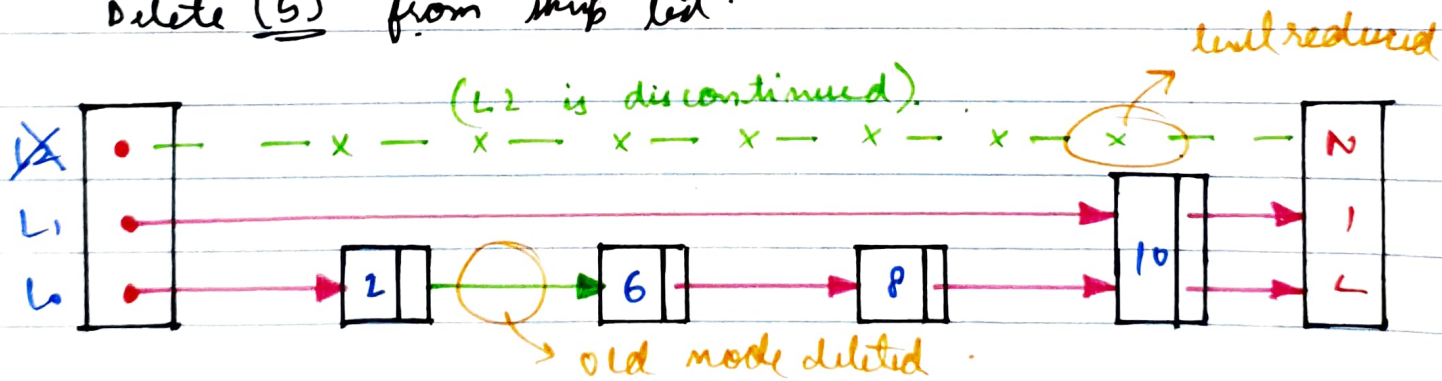 Delete (5) from skip list
level reduced
(L2 is discontinued).
L2 x x x x x x x N
L1 I
10
L0 2 6 8 L
old node deleted.